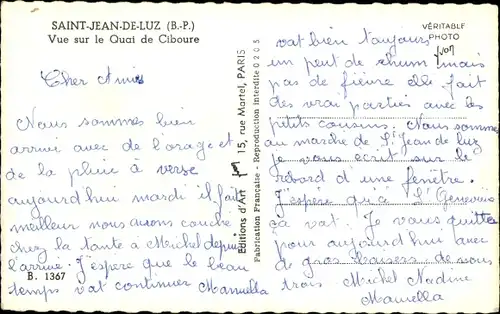 SAINT-JEAN-DE-LUZ (B.-P.)
Vue sur le Quai de Ciboure
Cher Amis
Nous sommes bien
arrivi avec de l'orage et
de la pluie à verse
aujourd'hui mardi il fait
meilleur nous avons couche
chez la tante à Michel depuis
l'arrive. J'espere que le beau
temps vat continuer Manuella
B. 1367
Editions d'Art yvon 15, rue Martel, PARIS
Fabrication Française - Reproduction interdite 0205
VÉRITABLE
PHOTO
yvon
vat bien toujours
un peut de rhum mais
pas de fièvre elle fait
des vrai parties avec les
petits cousins. Nous sommes
au marche de St Jean de luz
je vous ecrit sur le
rebord d'une fenêtre.
J'espère qu'a St Genevieve
ça vat. Je vous quitte
pour aujourd'hui avec
de gros baisers de nous
trois Michel Nadine
Manuella